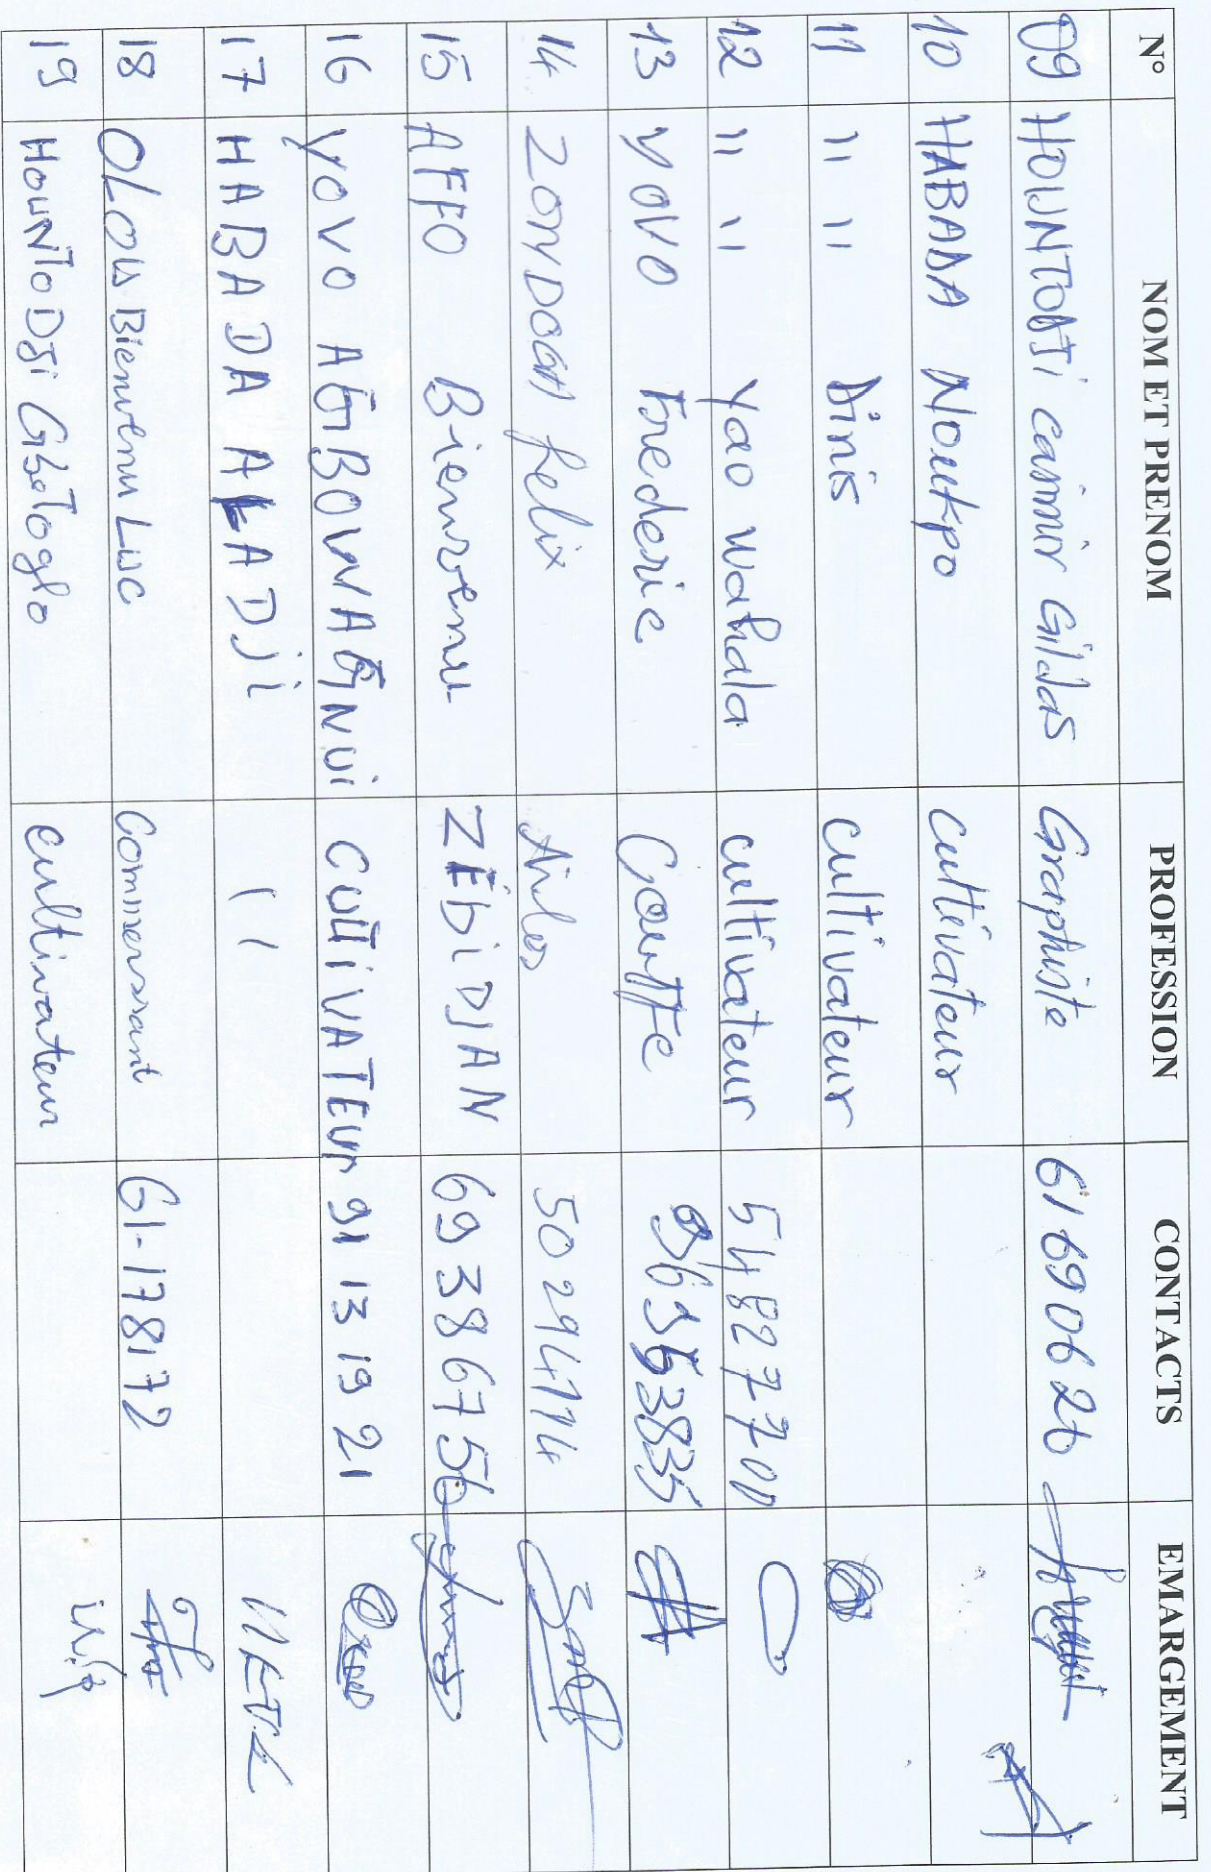 N° NOM ET PRENOM PROFESSION CONTACTS EMARGEMENT
09 HOUNTONDJi casimir Gildas Graphiste 61690626
10 HABADA Noukpo cultivateur
11 " " Dinis cultivateur
12 " " Yao wahala cultivateur 54827700
13 YOVO Frederic Couffe
14 ZONDOGA felix 50294114
15 AFFO Bienvenu ZEDiDJAN 69386756
16 YOVO AGBOWAGNUi CULTiVATEUr 91 13 19 21
17 HABADA ALADJi "
18 OLOU Bienvenu Luc Commerssant 61-178172
19 HOUNTODJi Gbetoglo cultivateur